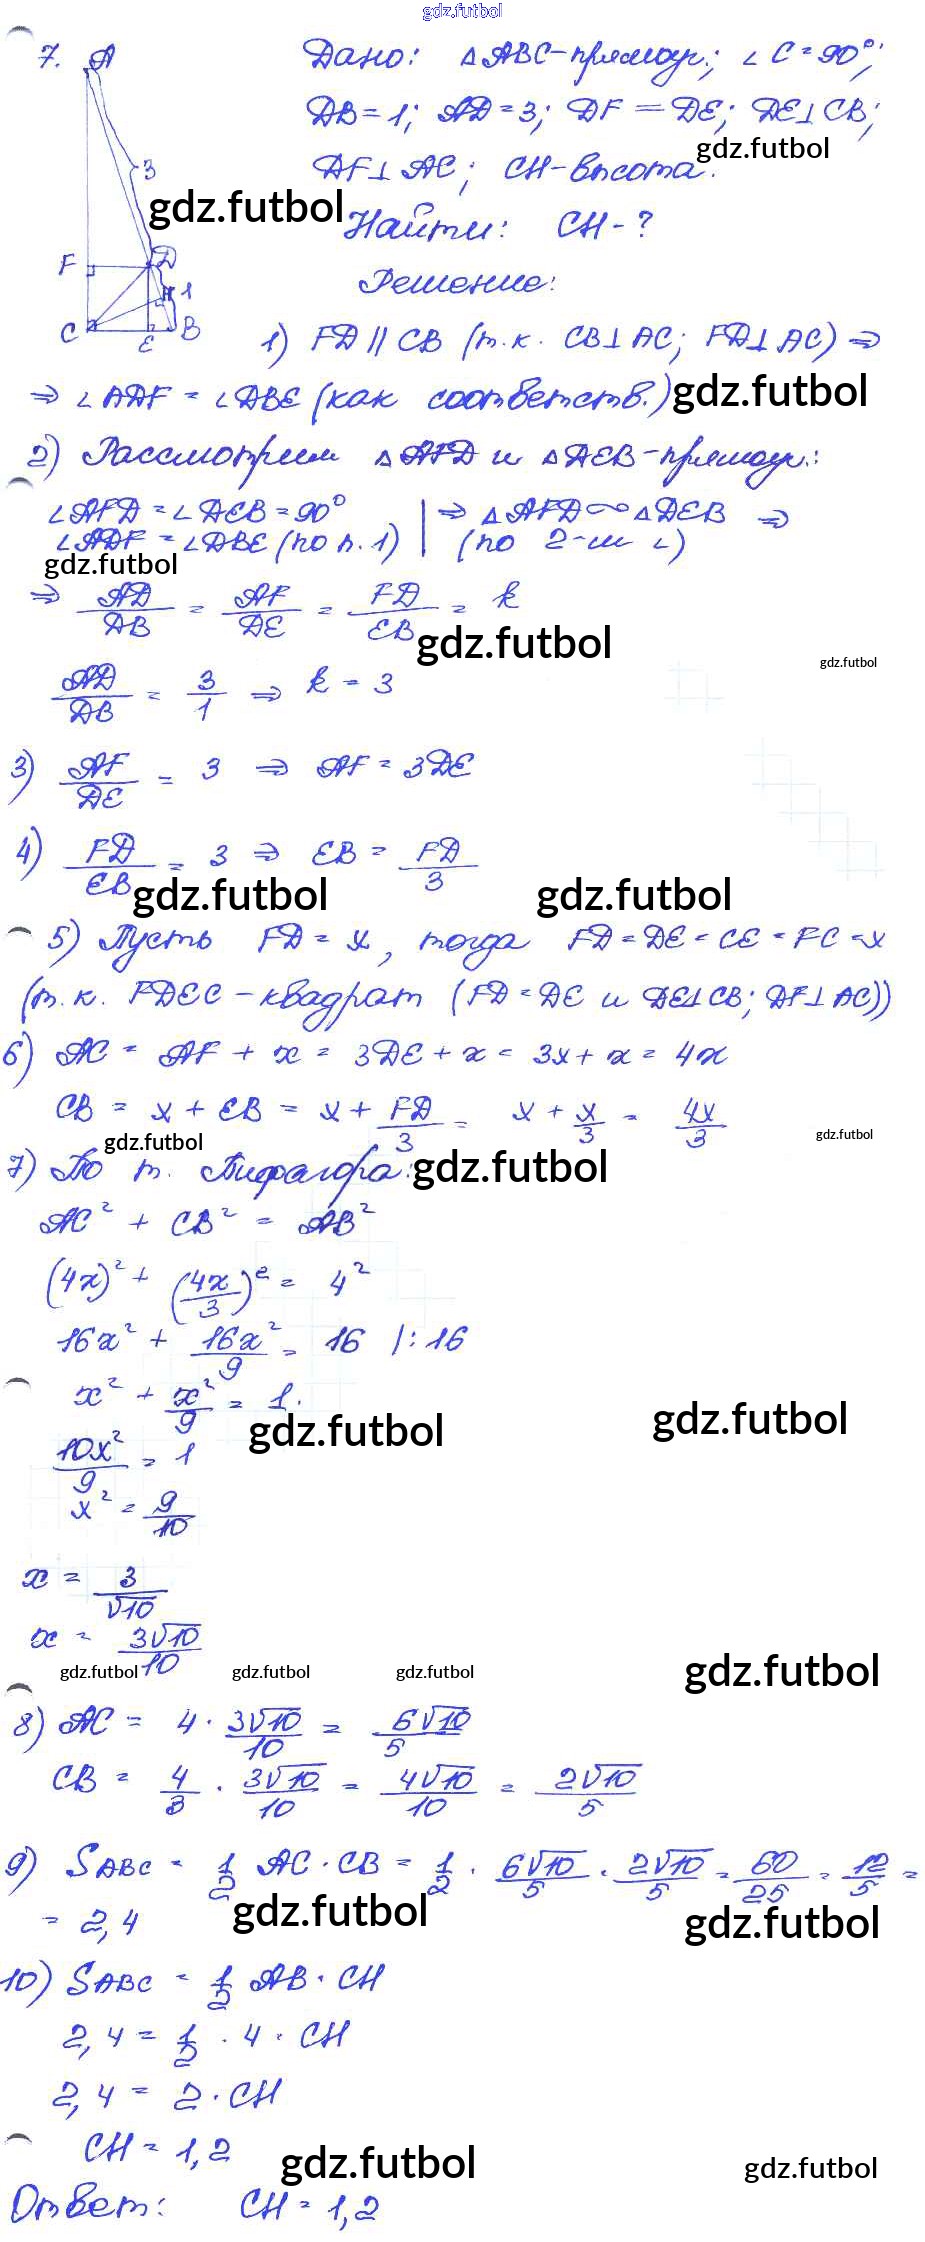 gdz.futbol
7. A
Дано: △ABC-прямоуг.; ∠C=90°;
DB=1; AD=3; DF=DE; DE⊥CB;
gdz.futbol
DF⊥AC; CH-высота.
3
gdz.futbol
Найти: CH-?
F D
Решение:
H 1
C E B
1) FD∥CB (т.к. CB⊥AC; FD⊥AC) ⇒
⇒ ∠ADF = ∠DBE (как соответств.) gdz.futbol
2) Рассмотрим △AFD и △DEB-прямоуг.:
∠AFD=∠DEB=90° | ⇒ △AFD∾△DEB ⇒
∠ADF=∠DBE (по п.1) | (по 2-м ∠)
gdz.futbol
⇒ AD/DB = AF/DE = FD/EB = k
gdz.futbol
gdz.futbol
AD/DB = 3/1 ⇒ k = 3
3) AF/DE = 3 ⇒ AF = 3DE
4) FD/EB = 3 ⇒ EB = FD/3
gdz.futbol gdz.futbol
5) Пусть FD = x, тогда FD=DE=CE=FC=x
(т.к. FDEC-квадрат (FD=DE и DE⊥CB; DF⊥AC))
6) AC = AF + x = 3DE + x = 3x + x = 4x
CB = x + EB = x + FD/3 = x + x/3 = 4x/3
gdz.futbol gdz.futbol
7) По т. Пифагора: gdz.futbol
AC² + CB² = AB²
(4x)² + (4x/3)² = 4²
16x² + 16x²/9 = 16 |:16
x² + x²/9 = 1.
gdz.futbol gdz.futbol
10x²/9 = 1
x² = 9/10
x = 3/√10
x = 3√10/10
gdz.futbol gdz.futbol gdz.futbol gdz.futbol
8) AC = 4 · 3√10/10 = 6√10/5
CB = 4/3 · 3√10/10 = 4√10/10 = 2√10/5
9) SABC = 1/2 AC · CB = 1/2 · 6√10/5 · 2√10/5 = 60/25 = 12/5 =
= 2,4 gdz.futbol gdz.futbol
10) SABC = 1/2 AB · CH
2,4 = 1/2 · 4 · CH
2,4 = 2 · CH
CH = 1,2
gdz.futbol gdz.futbol
Ответ: CH = 1,2